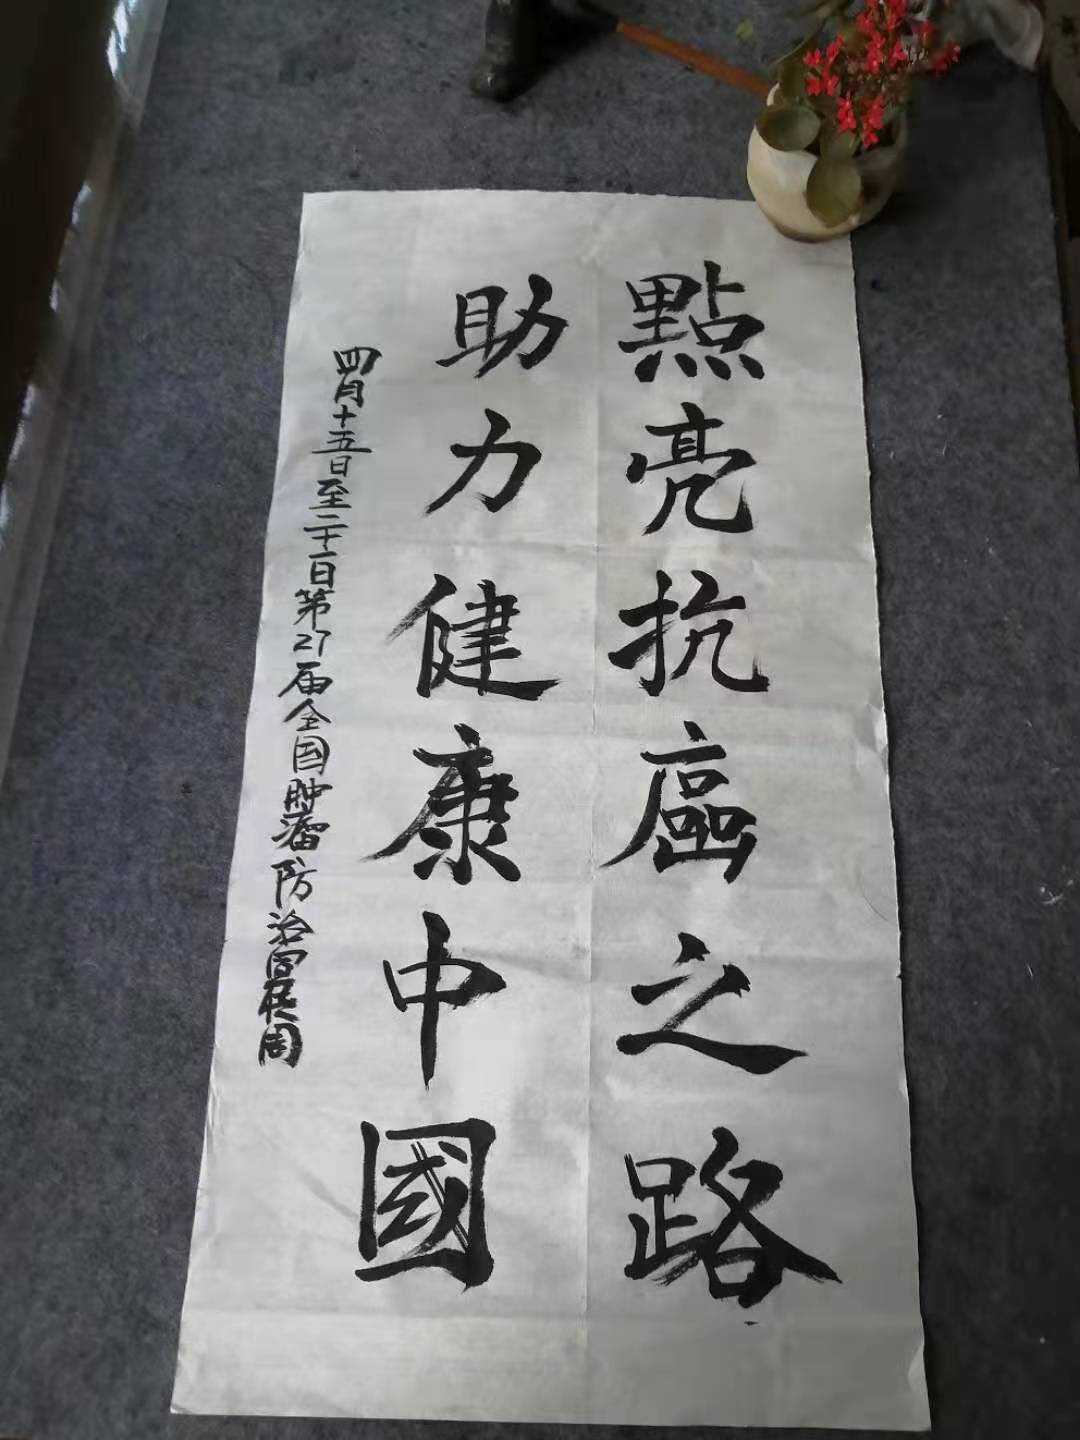 點亮抗癌之路
助力健康中國
四月十五日至二十一日第27届全国肿瘤防治宣传周